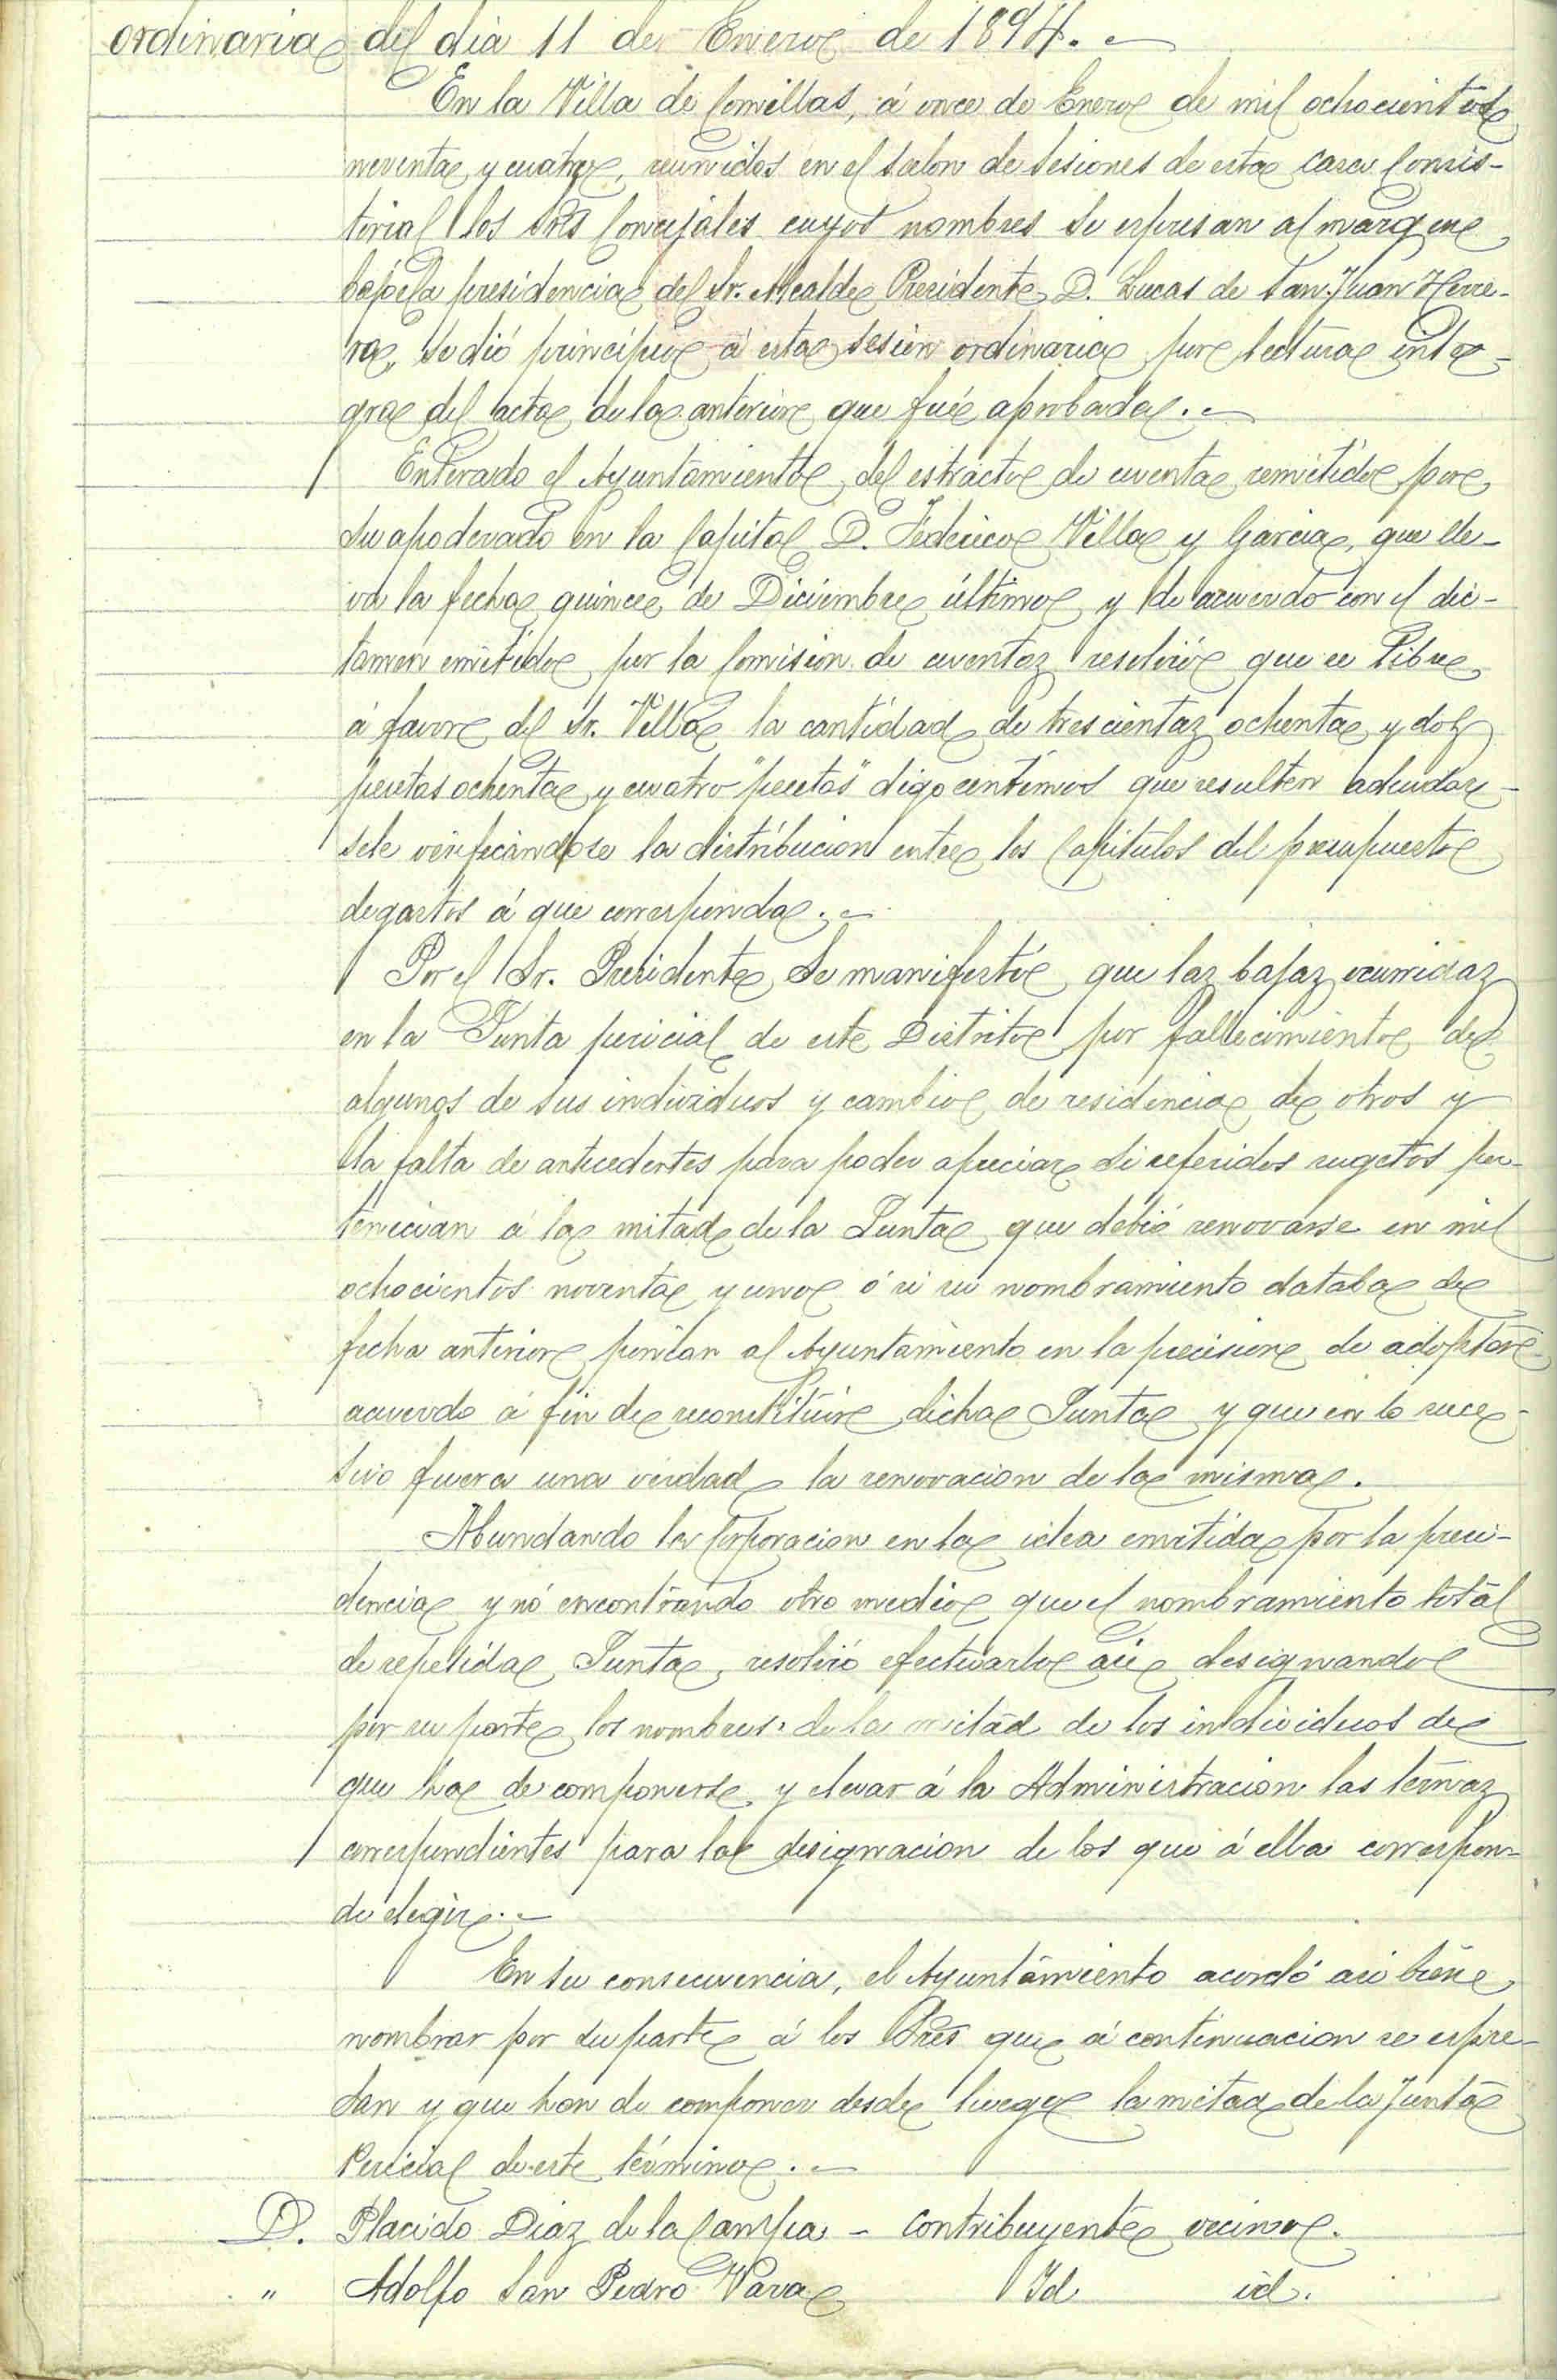 ordinaria del dia 11 de Enero de 1894.
En la Villa de Comillas, á once de Enero de mil ochocientos
noventa y cuatro, reunidos en el salon de sesiones de esta casa Consis-
torial los Sres Concejales cuyos nombres se espresan al margen
bajo la presidencia del Sr. Alcalde Presidente D. Lucas de San Juan Herre-
ra, se dió principio á esta sesion ordinaria por lectura inte-
gra del acta de la anterior que fué aprobada.
Enterado el Ayuntamiento del estracto de cuenta remitido por
su apoderado en la Capital D. Federico Villa y Garcia, que lle-
va la fecha quince de Diciembre último y de acuerdo con el dic-
tamen emitido por la Comision de cuentas resolvió que se libre
á favor del Sr. Villa la cantidad de trescientas ochenta y dos
pesetas ochenta y cuatro "pesetas" digo centimos que resulten adeudar-
sele verificandose la distribucion entre los Capitulos del presupuesto
de gastos á que corresponda.
Por el Sr. Presidente se manifestó que las bajas ocurridas
en la Junta pericial de este Distrito por fallecimiento de
algunos de sus individuos y cambio de residencia de otros y
la falta de antecedentes para poder apreciar si referidos sugetos per-
tenecian á la mitad de la Junta que debió renovarse en mil
ochocientos noventa y uno ó si su nombramiento databa de
fecha anterior ponian al Ayuntamiento en la precision de adoptar
acuerdo á fin de reconstituir dicha Junta y que en lo suce-
sivo fuera una verdad la renovacion de la misma.
Abundando la Corporacion en la idea emitida por la presi-
dencia y nó encontrando otro medio que el nombramiento total
de repetida Junta, resolvió efectuarlo asi designando
por su parte los nombres de la mitad de los individuos de
que ha de componerse y elevar á la Administracion las ternas
correspondientes para la designacion de los que á ella correspon-
de elegir.
En su consecuencia, el Ayuntamiento acordó asi bien
nombrar por su parte á los Sres que á continuacion se espre-
san y que han de componer desde luego la mitad de la Junta
Pericial de este término.
D. Placido Diaz de la Campa - Contribuyente vecino.
" Adolfo San Pedro Vara Id id.